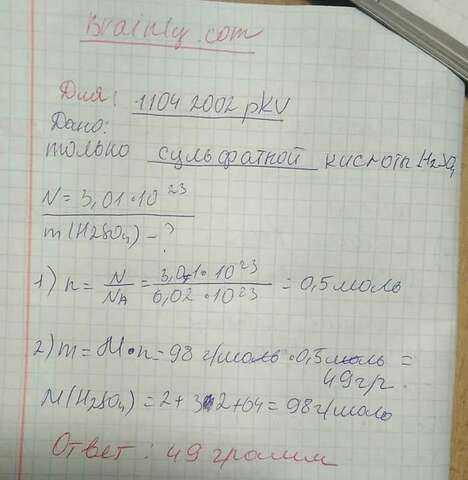 Brainly.com
Для: 11042002pkv
Дано:
только сульфатной кислоты H2SO4
N = 3,01·10²³
m(H2SO4) - ?
1) n = N/NA = 3,01·10²³/6,02·10²³ = 0,5 моль
2) m = M·n = 98 г/моль·0,5 моль =
49 г/г.
M(H2SO4) = 2+32+64 = 98 г/моль
Ответ: 49 грамм